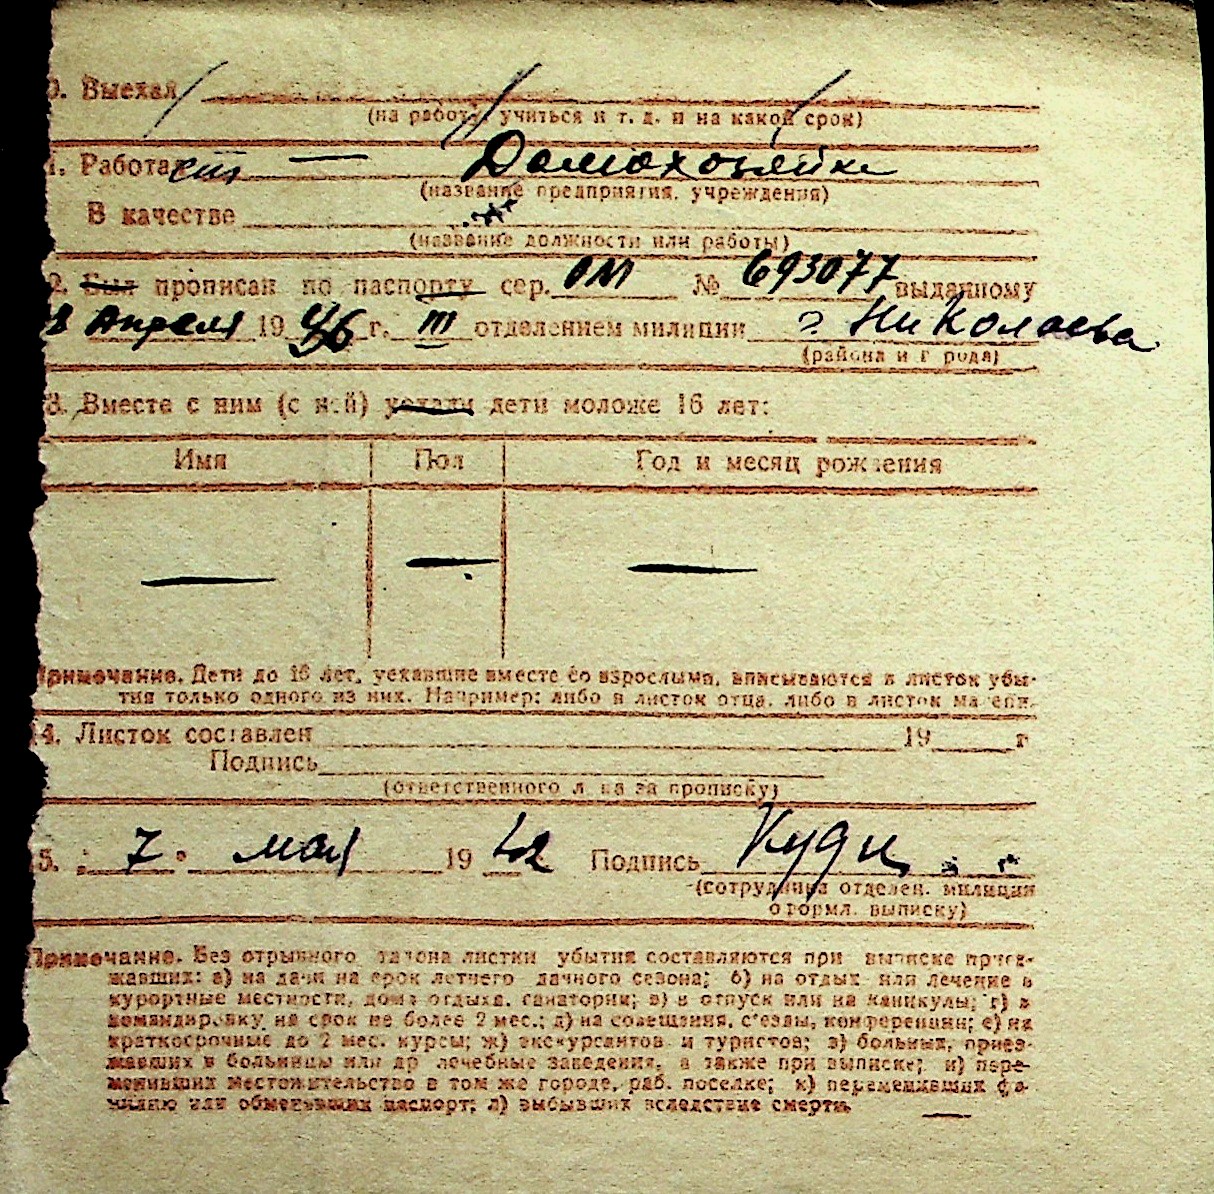 0. Выехал
(на работу учиться и т. д. и на какой срок)
1. Работает — Домохозяйка
(название предприятия, учреждения)
В качестве
(название должности или работы)
2. Был прописан по паспорту сер. ОМ № 693077 выданному
8 Апреля 19 г. III отделением милиции г. Николаева
(района и города)
3. Вместе с ним (с ней) уехали дети моложе 16 лет:
Имя Пол Год и месяц рождения
— — —
Примечание. Дети до 16 лет, уехавшие вместе со взрослыми, вписываются в листок убы-
тия только одного из них. Например: либо в листок отца, либо в листок матери.
4. Листок составлен 19 г
Подпись
(ответственного лица за прописку)
5. 7 мая 19 42 Подпись
(сотрудника отделен. милиции
оформл. выписку)
Примечание. Без отрывного талона листки убытия составляются при выписке приез-
жавших: а) на дачи на срок летнего дачного сезона; б) на отдых или лечение в
курортные местности, дома отдыха, санатории; в) в отпуск или на каникулы; г) в
командировку на срок не более 2 мес.; д) на совещания, с'езды, конференции; е) на
краткосрочные до 2 мес. курсы; ж) экскурсантов и туристов; з) больных, приез-
жавших в больницы или др лечебные заведения, а также при выписке; и) пере-
менивших местожительство в том же городе, раб. поселке; к) переменивших фа-
милию или обменявших паспорт; л) выбывших вследствие смерти.